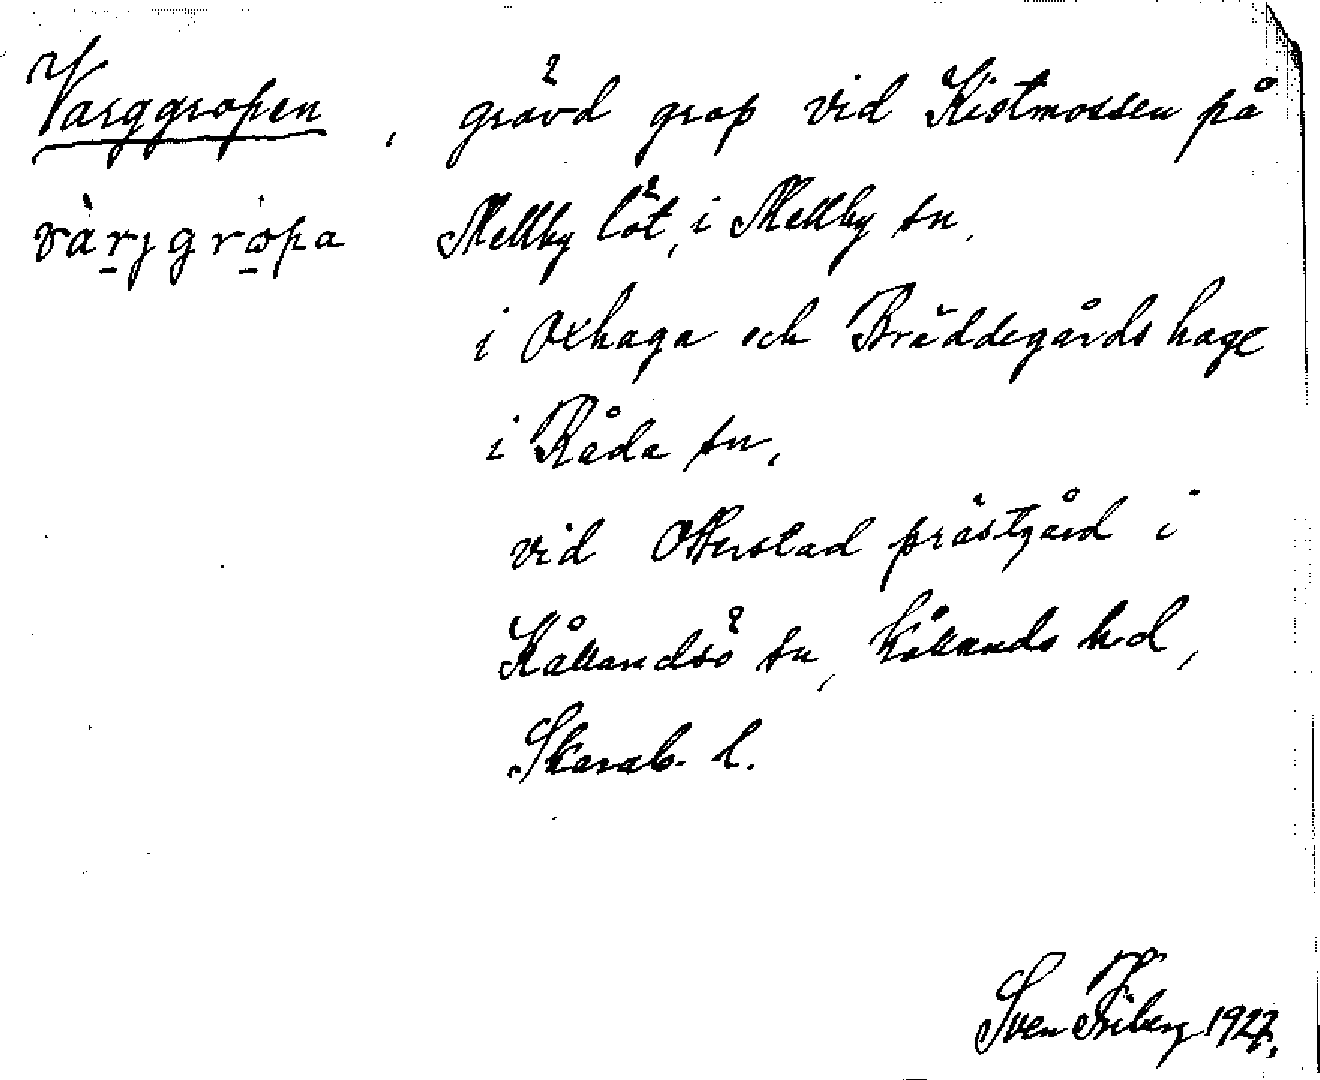 Varggropen, grävd grop vid Kistmossen på
vàrjgròpa Mellby löt, i Mellby sn,
i Oxhaga och Bräddegårds hage
i Råda sn,
vid Otterstad prästgård i
Kållandsö sn, Kållands hd,
Skarab. l.
Sven Friberg 1927.